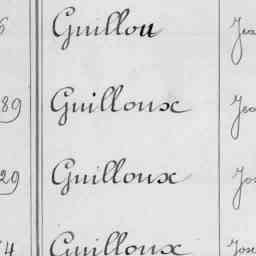 6 Guillou Jea
89 Guilloux Jea
29 Guilloux Jos
4 Guilloux Jose